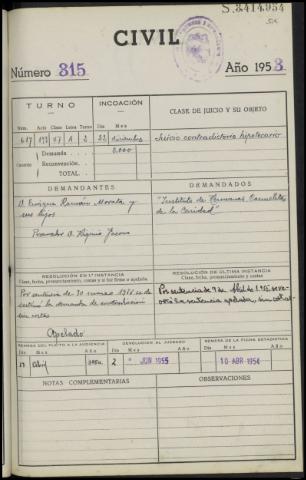 S.3414.954
CIVIL
Número 315 Año 1953
TURNO
INCOACIÓN
CLASE DE JUICIO Y SU OBJETO
Núm. Año Clase Letra Turno
Día Mes
22 Diciembre
Juicio contradictorio hipotecario
Cuantía
Demanda 5.000
Reconvención
TOTAL
DEMANDANTES
DEMANDADOS
D. Enrique Ramón Morata y
sus hijos
Procurador D. Higinio
"Instituto de Hermanas Carmelitas
de la Caridad"
RESOLUCIÓN EN 1.ª INSTANCIA
Clase, fecha, pronunciamiento, costas y si fué firme o apelada
RESOLUCIÓN DE ÚLTIMA INSTANCIA
Clase, fecha, pronunciamiento y costas
Por sentencia de 30 marzo 1954 se de-
la demanda de contradicción
sin costas
Apelado
Por sentencia de 9 de Abril de 1955 se re-
la sentencia apelada, sin costas
REMESA DEL PLEITO A LA AUDIENCIA
DEVOLUCIÓN AL JUZGADO
REMESA DE LA FICHA ESTADÍSTICA
Día Mes Año
Día Mes Año
Día Mes Año
Abril 1954
2 JUN 1955
10 ABR 1954
NOTAS COMPLEMENTARIAS
OBSERVACIONES